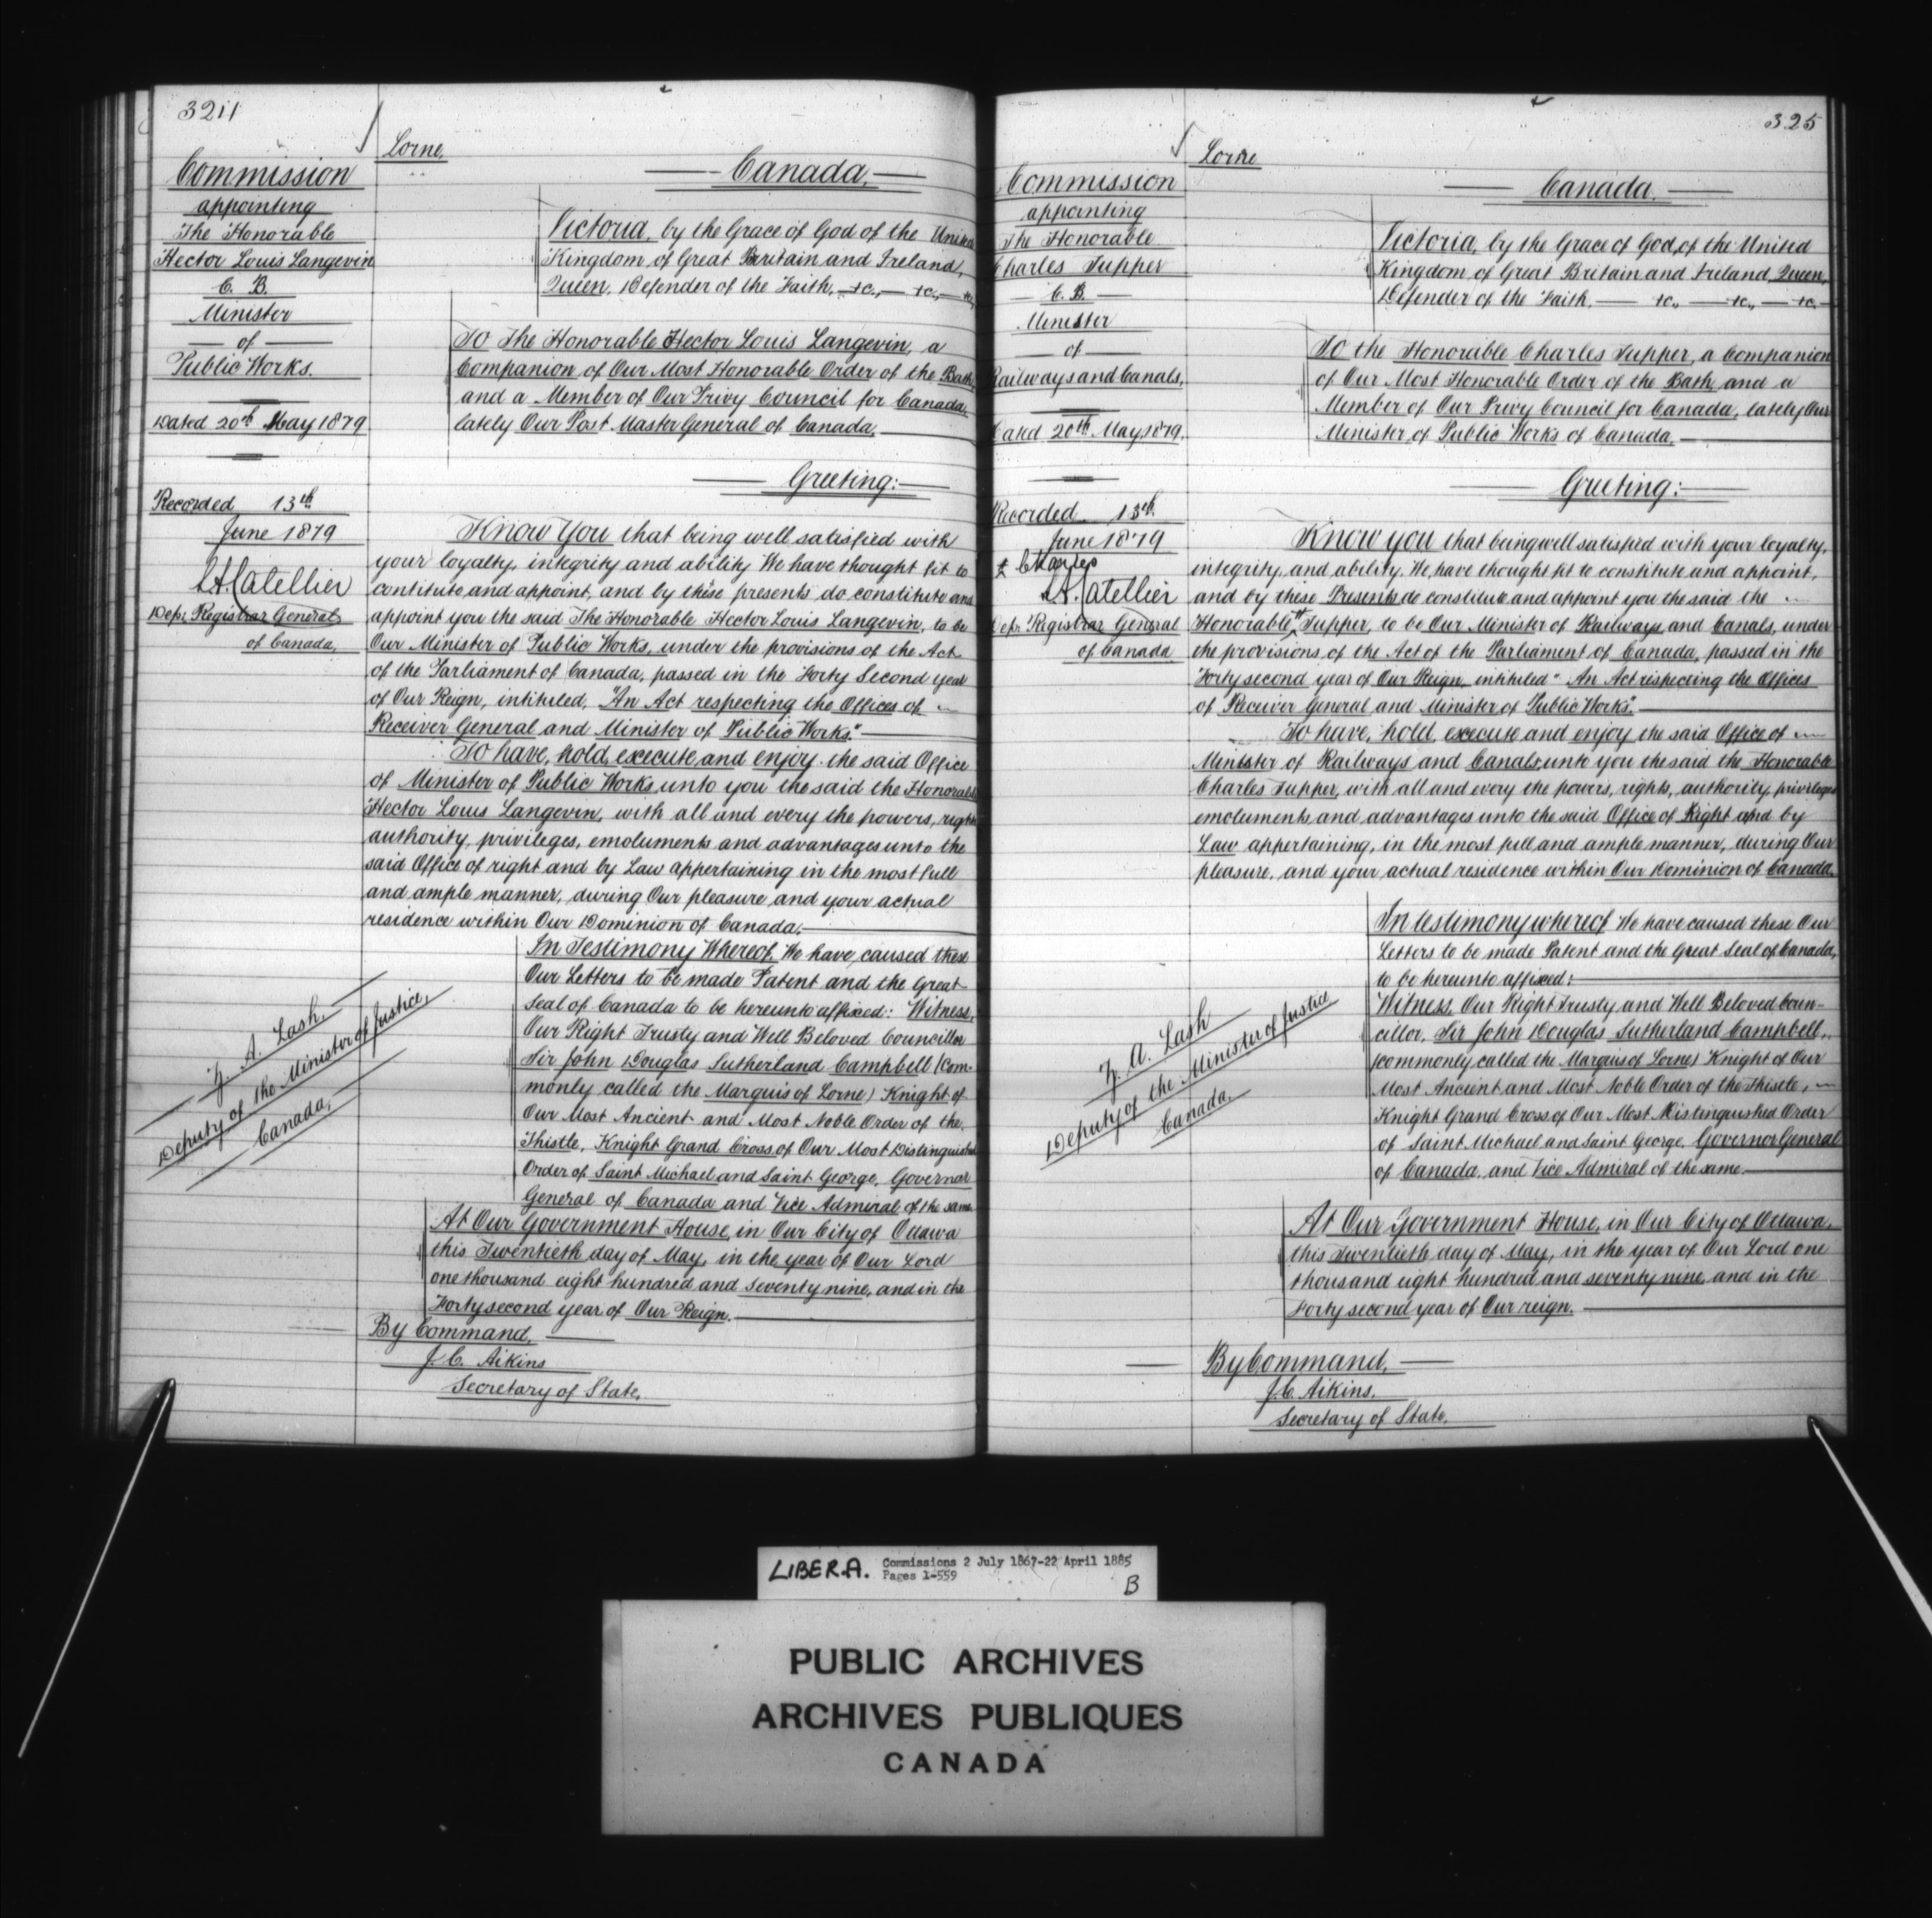 324
Lorne,
Commission
appointing
The Honorable
Hector Louis Langevin
C. B.
Minister
of
Public Works.
Dated 20th May 1879
Recorded 13th
June 1879
L. A. Catellier
Dep. Registrar General
of Canada,
Z. A. Lash.
Deputy of the Minister of Justice,
Canada,
Canada,
Victoria, by the Grace of God of the United
Kingdom, of Great Britain and Ireland,
Queen, Defender of the Faith, &c., — &c., — &c,
To The Honorable Hector Louis Langevin, a
Companion of Our Most Honorable Order of the Bath
and a Member of Our Privy Council for Canada,
lately Our Post Master General of Canada,
Greeting:
Know You that being well satisfied with
your loyalty, integrity and ability We have thought fit to
contitute and appoint, and by these presents do constitute and
appoint you the said The Honorable Hector Louis Langevin, to be
Our Minister of Public Works, under the provisions of the Act
of the Parliament of Canada, passed in the Forty Second year
of Our Reign, intituled, "An Act respecting the Offices of
Receiver General and Minister of Public Works."
To have, hold, execute and enjoy the said Office
of Minister of Public Works, unto you the said the Honorable
Hector Louis Langevin, with all and every the powers, rights
authority, privileges, emoluments and advantages unto the
said Office of right and by Law appertaining in the most full
and ample manner, during Our pleasure and your actual
residence within Our Dominion of Canada,
In Testimony Whereof, We have caused these
Our Letters to be made Patent and the Great
Seal of Canada to be hereunto affixed: Witness,
Our Right Trusty and Well Beloved Councillor
Sir John Douglas Sutherland Campbell (Com-
monly called the Marquis of Lorne) Knight of
Our Most Ancient and Most Noble Order of the
Thistle, Knight Grand Cross of Our Most Distinguished
Order of Saint Michael and Saint George, Governor
General of Canada and Vice Admiral of the same
At Our Government House, in Our City of Ottawa
this Twentieth day of May, in the year of Our Lord
one thousand eight hundred and seventy nine, and in the
Forty second year of Our Reign.
By Command,
J. C. Aikins
Secretary of State,
325
Lorne
Commission
appointing
The Honorable
Charles Tupper
C. B.
Minister
of
Railways and Canals,
Dated 20th May 1879.
Recorded 13th
June 1879
Charles
L. A. Catellier
Dep. Registrar General
of Canada
Z. A. Lash
Deputy of the Minister of Justice
Canada
Canada.
Victoria, by the Grace of God, of the United
Kingdom of Great Britain and Ireland, Queen,
Defender of the Faith, — &c., — &c., — &c.
To the Honorable Charles Tupper, a Companion
of Our Most Honorable Order of the Bath and a
Member of Our Privy Council for Canada, lately Our
Minister of Public Works of Canada,
Greeting:
Know you that being well satisfied with your loyalty,
integrity, and ability, We have thought fit to constitute and appoint,
and by these Presents do constitute and appoint you the said the
Honorable Tupper, to be Our Minister of Railways and Canals, under
the provisions of the Act of the Parliament of Canada, passed in the
Forty second year of Our Reign, intituled "An Act respecting the Offices
of Receiver General and Minister of Public Works."
To have, hold, execute and enjoy the said Office of
Minister of Railways and Canals, unto you the said the Honorable
Charles Tupper, with all and every the powers, rights, authority, privileges
emoluments and advantages unto the said Office of Right and by
Law appertaining, in the most full and ample manner, during Our
pleasure, and your actual residence within Our Dominion of Canada,
In testimony whereof We have caused these Our
Letters to be made Patent and the Great Seal of Canada,
to be hereunto affixed:
Witness, Our Right Trusty and Well Beloved Coun-
cillor, Sir John Douglas Sutherland Campbell,
(commonly called the Marquis of Lorne) Knight of Our
Most Ancient and Most Noble Order of the Thistle,
Knight Grand Cross of Our Most Distinguished Order
of Saint Michael and Saint George, Governor General
of Canada, and Vice Admiral of the same.
At Our Government House, in Our City of Ottawa,
this Twentieth day of May, in the year of Our Lord one
thousand eight hundred and seventy nine, and in the
Forty second year of Our reign.
By Command,
J. C. Aikins,
Secretary of State.
LIBER.A.
Commissions 2 July 1867-22 April 1885
Pages 1-559
B
PUBLIC ARCHIVES
ARCHIVES PUBLIQUES
CANADA